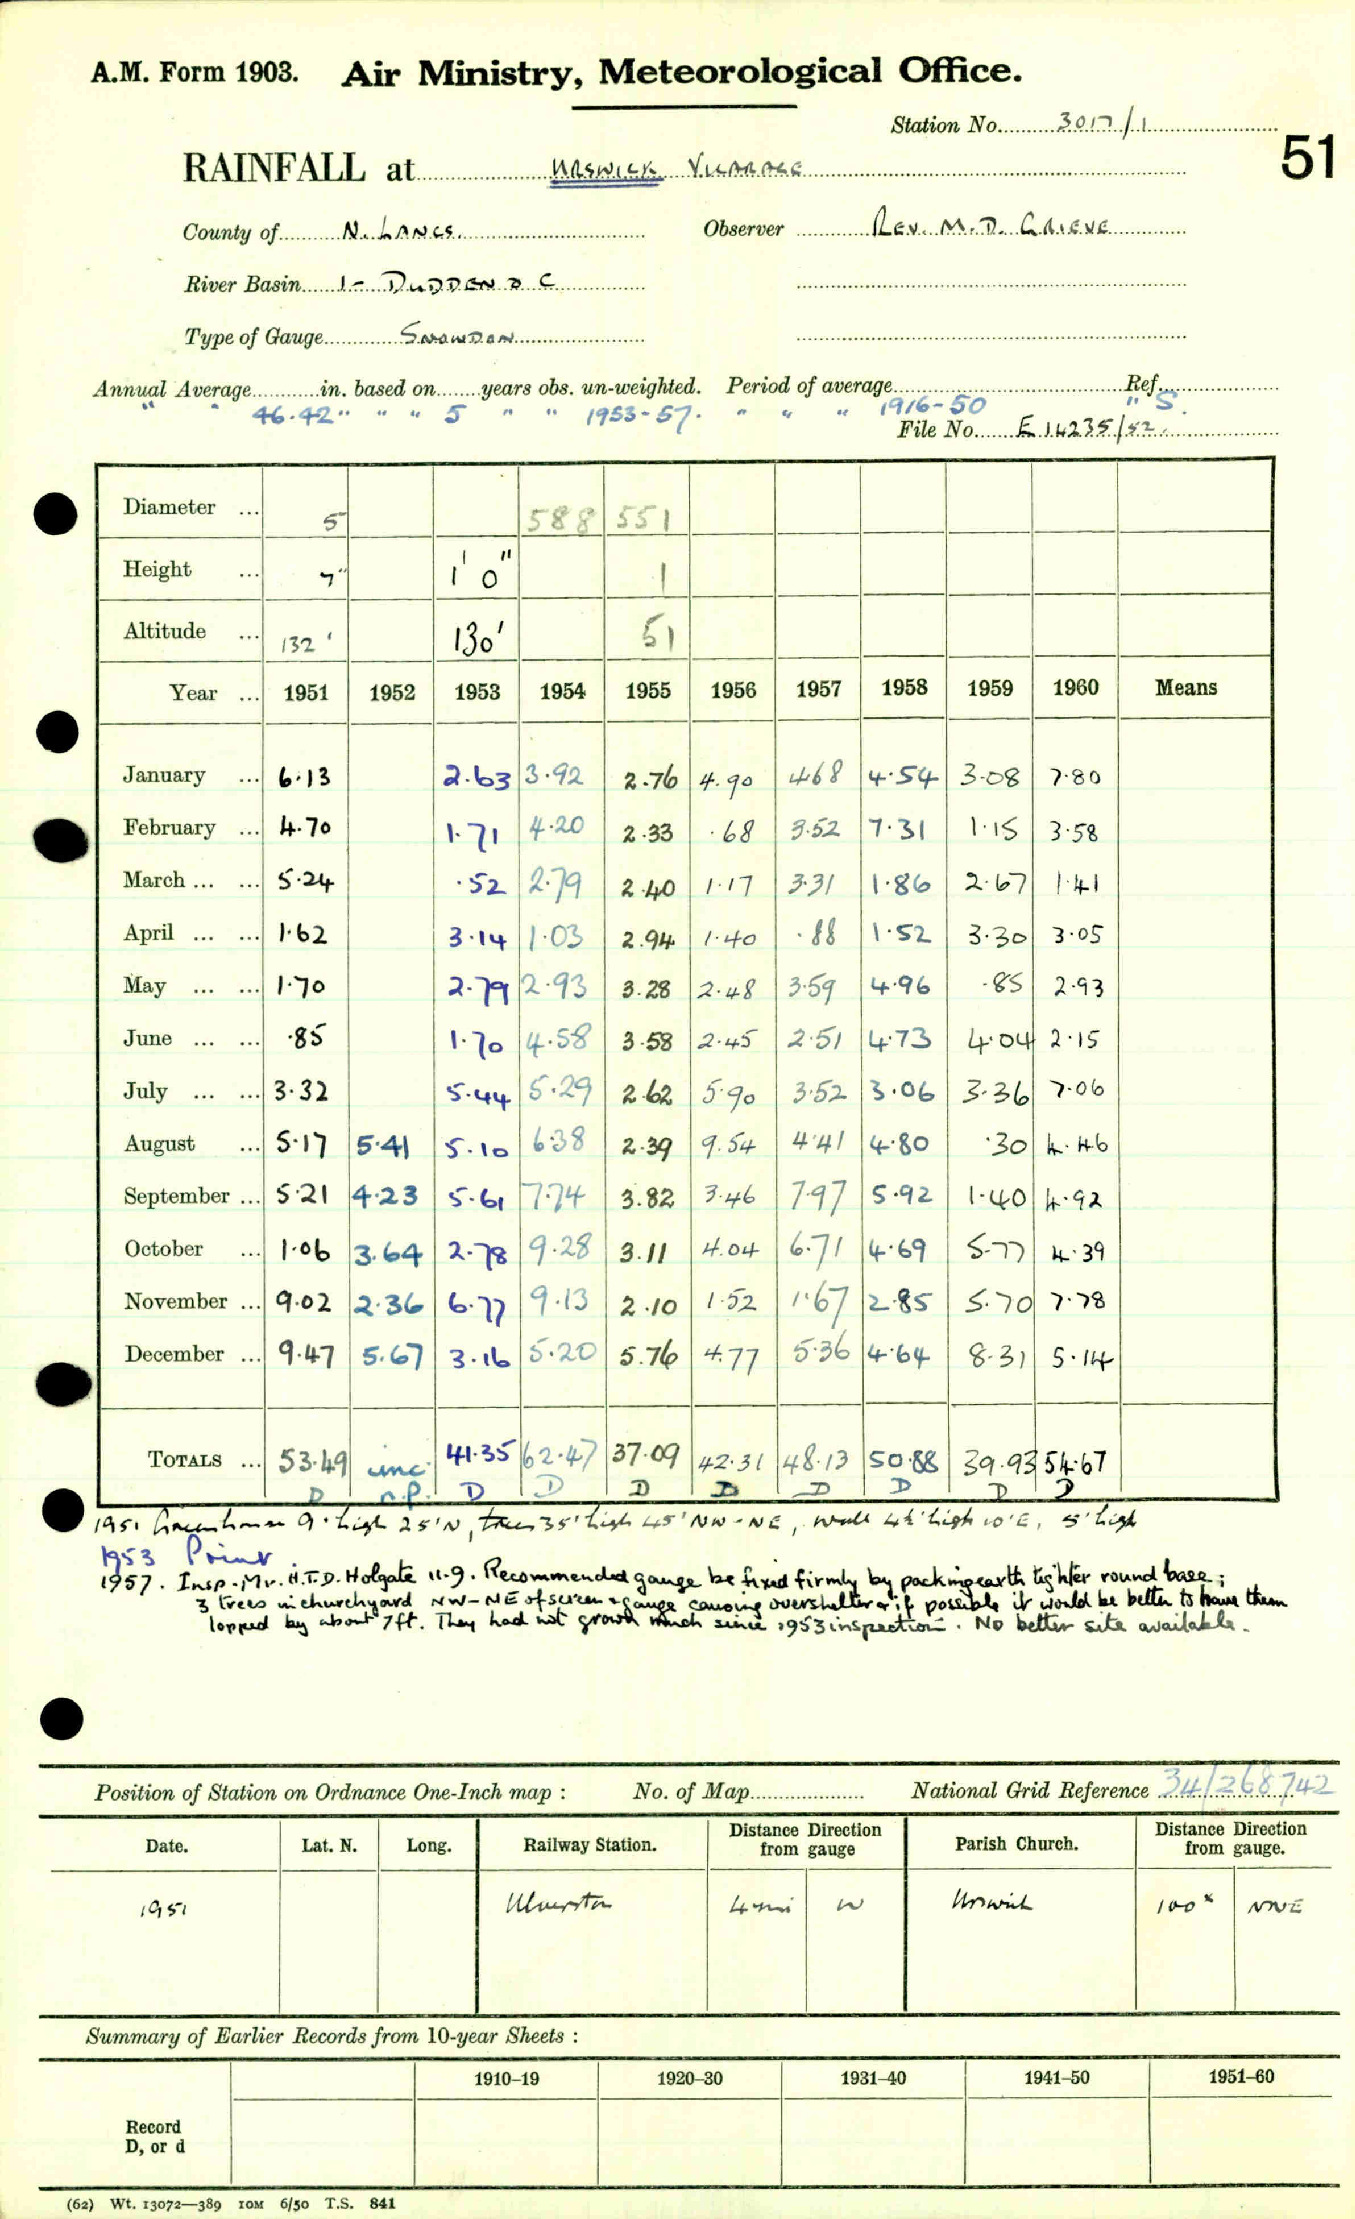 A.M. Form 1903. Air Ministry, Meteorological Office.
Station No. 3017/1
51
RAINFALL at URSWICK VICARAGE
County of N. LANCS. Observer REV. M. D. GRIEVE
River Basin 1- DUDDEN & C
Type of Gauge SNOWDON
Annual Average in. based on years obs. un-weighted. Period of average Ref.
" " 46.42 " " " 5 " " 1953-57. " " " 1916-50 " S.
File No. E 14235/52.
Diameter ... 5 588 551
Height ... 7" 1' 0" 1
Altitude ... 132' 130' 51
Year ... 1951 1952 1953 1954 1955 1956 1957 1958 1959 1960 Means
January ... 6.13 2.63 3.92 2.76 4.90 4.68 4.54 3.08 7.80
February ... 4.70 1.71 4.20 2.33 .68 3.52 7.31 1.15 3.58
March ... ... 5.24 .52 2.79 2.40 1.17 3.31 1.86 2.67 1.41
April ... ... 1.62 3.14 1.03 2.94 1.40 .88 1.52 3.30 3.05
May ... ... 1.70 2.79 2.93 3.28 2.48 3.59 4.96 .85 2.93
June ... ... .85 1.70 4.58 3.58 2.45 2.51 4.73 4.04 2.15
July ... ... 3.32 5.44 5.29 2.62 5.90 3.52 3.06 3.36 7.06
August ... 5.17 5.41 5.10 6.38 2.39 9.54 4.41 4.80 .30 4.46
September ... 5.21 4.23 5.61 7.74 3.82 3.46 7.97 5.92 1.40 4.92
October ... 1.06 3.64 2.78 9.28 3.11 4.04 6.71 4.69 5.77 4.39
November ... 9.02 2.36 6.77 9.13 2.10 1.52 1.67 2.85 5.70 7.78
December ... 9.47 5.67 3.16 5.20 5.76 4.77 5.36 4.64 8.31 5.14
TOTALS ... 53.49 inc. 41.35 62.47 37.09 42.31 48.13 50.88 39.93 54.67
D n.p. D D D D D D D D
1951 Greenhouse 9' high 25' N, trees 35' high 45' NW-NE, wall 4½' high 10' E, 5' high
1953 Print
1957. Insp. Mr. H.T.D. Holgate 11.9. Recommended gauge be fixed firmly by packing earth tighter round base;
3 trees in churchyard NW-NE of screen & gauge causing overshelter & if possible it would be better to have them
lopped by about 7ft. They had not grown much since 1953 inspection. No better site available.
Position of Station on Ordnance One-Inch map : No. of Map National Grid Reference 34/268742
Date. Lat. N. Long. Railway Station. Distance Direction from gauge Parish Church. Distance Direction from gauge.
1951 Ulverston 4 mi W Urswick 100x NNE
Summary of Earlier Records from 10-year Sheets :
1910–19 1920–30 1931–40 1941–50 1951–60
Record
D, or d
(62) Wt. 13072—389 10M 6/50 T.S. 841